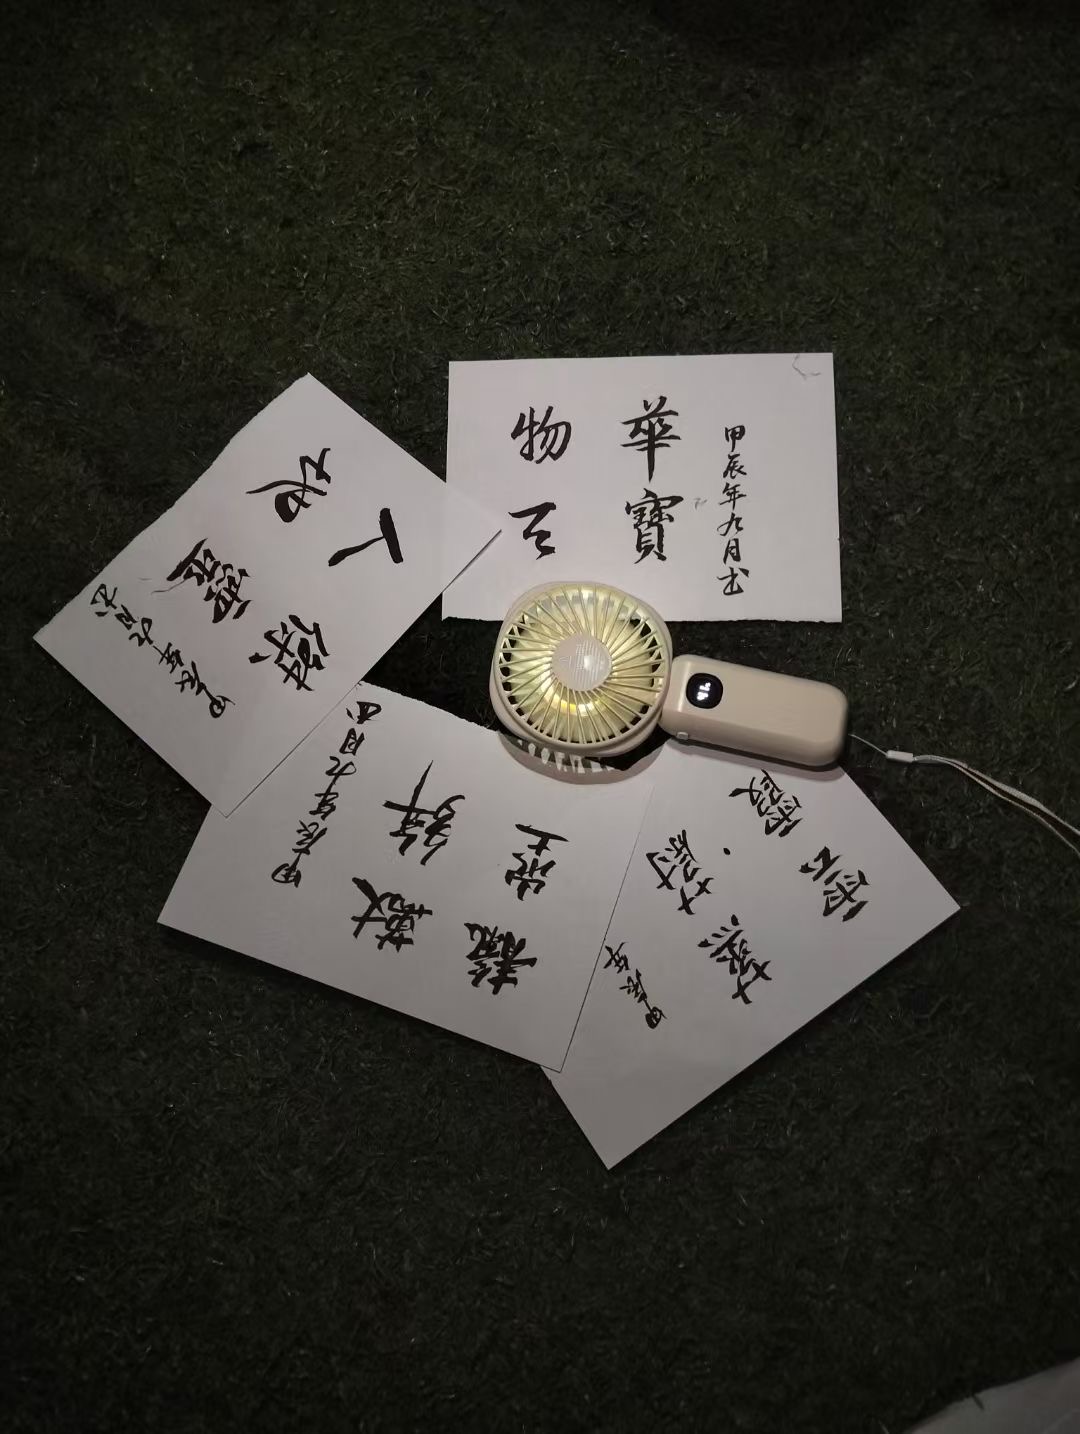 物華
天寶
甲辰年九月书
人傑
地靈
甲辰年九月书
雲蒸
霞蔚
甲辰年
甲辰年九月书